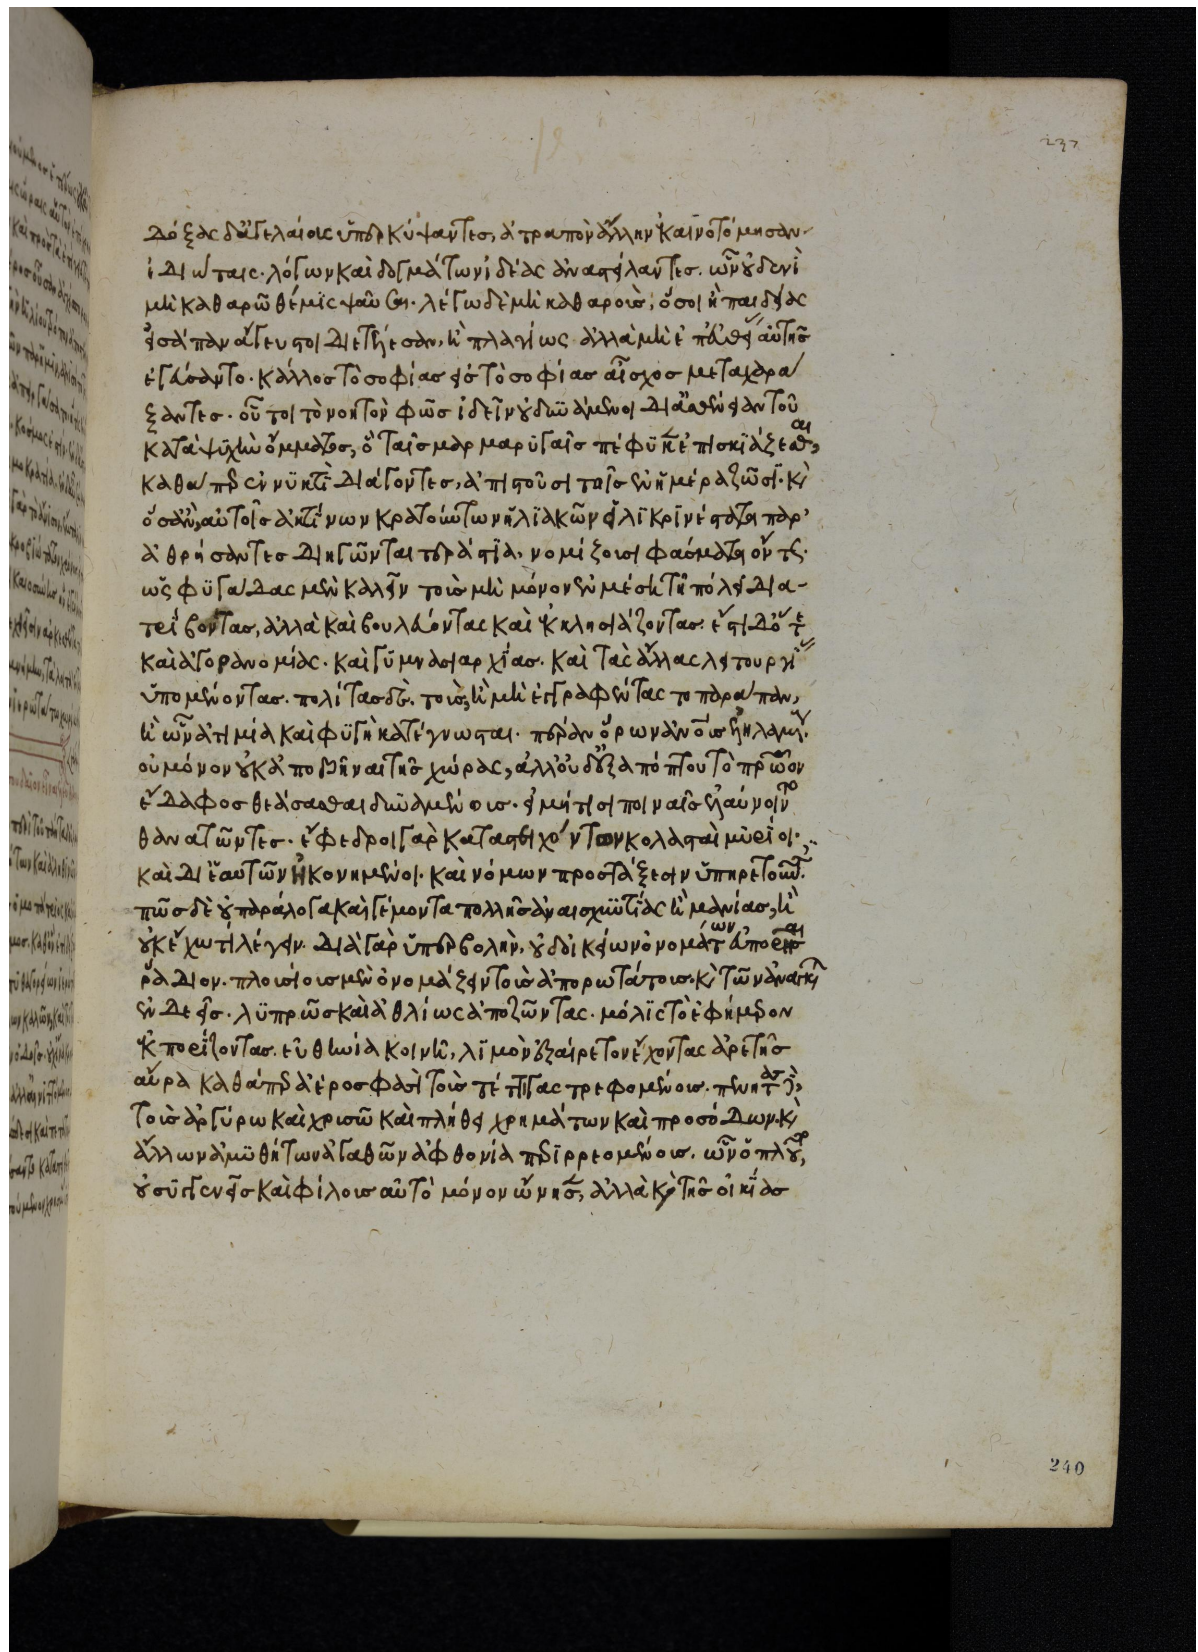 237
Δόξας δ' ἀγελαίους ὑπερκύψαντες, ἀτραπὸν ἄλλην ἐκαινοτόμησαν
ἰδιώταις. λόγων καὶ δογμάτων ἰδέας ἀναστείλαντες. ὧν οὐδενὶ
μὴ καθαρῶ θέμις ψαῦσαι. λέγω δὲ μὴ καθαροὺς, ὅσοι ἢ παιδείας
εἰσάπαν ἄγευστοι διετέλεσαν, ἢ πλαγίως ἀλλὰ μὴ ἐπ' εὐθείας αὐτῆς
ἐγεύσαντο. κάλλος τὸ σοφίας εἰς τὸ σοφίας αἶσχος μεταχαρά
ξαντες. οὗτοι τὸ νοητὸν φῶς ἰδεῖν οὐ δυνάμενοι δι' ἀσθένειαν τοῦ
κατὰ ψυχὴν ὄμματος, ὃ ταῖς μαρμαρυγαῖς πέφυκεν ἐπισκιάζεσθαι,
καθάπερ ἐν νυκτὶ διάγοντες, ἀπιστοῦσι τοῖς ἐν ἡμέρα ζῶσι. καὶ
ὅσα ἂν, αὐτοῖς ἀκτίνων κρατούντων ἡλιακῶν εἰλικρινέστατα παρ'
ἀθρήσαντες διηγῶνται τεράστια, νομίζουσι φάσμασιν ὄντες.
ὡς φυγάδας μὲν καλεῖν τοὺς μὴ μόνον ἐν μέση τῆ πόλει δια-
τρίβοντας, ἀλλὰ καὶ βουλεύοντας καὶ ἐκκλησιάζοντας. ἔστι δ' ὅτε
καὶ ἀγορανομίας. καὶ γυμνασιαρχίας. καὶ τὰς ἄλλας λειτουργίας
ὑπομένοντας. πολίτας δὲ, τοὺς, ἢ μὴ ἐγγραφέντας τοπαράπαν,
ἢ ὧν ἀτιμία καὶ φυγὴ κατέγνωσται. πέραν ὅρων ἀνθρώποις ἐληλαμένοις.
οὐ μόνον οὐκ ἀποβῆναι τῆς χώρας, ἀλλ' οὐδ' ἐξαπόπτου τὸ πατρῶον
ἔδαφος θεάσασθαι δυναμένοις. εἰ μή τισι ποιναῖς ἐλαύνοιντο
θανατῶντες. ἔφεδροι γὰρ κατασπιχόντων κολασταὶ μυρίοι.
καὶ δι' ἑαυτῶν ἠκονημένοι. καὶ νόμων προστάξεσιν ὑπηρετοῦντες.
πῶς δὲ οὐ παράλογα καὶ γέμοντα πολλῆς ἀναισχυντίας ἢ μανίας, ἢ
οὐκ ἔχω τί λέγειν. διὰ γὰρ ὑπερβολὴν, οὐδ' οἰκείων ὀνομάτων εὐπορῆσαι
ῥάδιον. πλουσίους μὲν ὀνομάζειν τοὺς ἀπορωτάτους. καὶ τῶν ἀναγκαίων
ἐνδεεῖς. λυπρῶς καὶ ἀθλίως ἀποζῶντας. μόλις τὸ ἐφήμερον
ἐκπορίζοντας. εὐθηνία κοινῆ, λιμὸν ἐξαίρετον ἔχοντας ἀρετῆς
αὔρα καθάπερ ἀέρος φασὶ τοὺς τέττιγας τρεφομένους. πένητας δὲ,
τοὺς ἀργύρω καὶ χρυσῶ καὶ πλήθει χρημάτων καὶ προσόδων. καὶ
ἄλλων ἀμυθήτων ἀγαθῶν ἀφθονία περιρρεομένους. ὧν ὁ πλοῦτος,
οὐ συγγενεῖς καὶ φίλους αὐτὸ μόνον ὤνησεν, ἀλλὰ καὶ τῆς οἰκίας
240